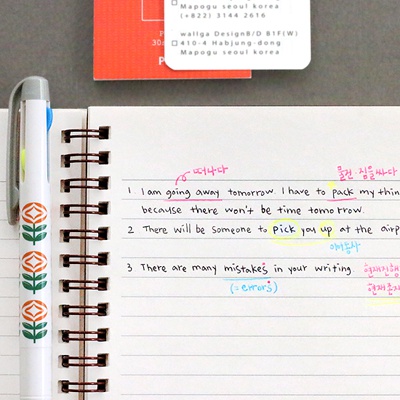 Mapogu seoul korea
(+822) 3144 2616
wallga DesignB/D B1F(W)
410-4 Habjung-dong
Mapogu seoul korea
떠나다
물건·짐을싸다
1. I am going away tomorrow. I have to pack my thin
because there won't be time tomorrow.
2. There will be someone to pick you up at the airp
이어동사
3. There are many mistakes in your writing. 현재진행
(=errors)